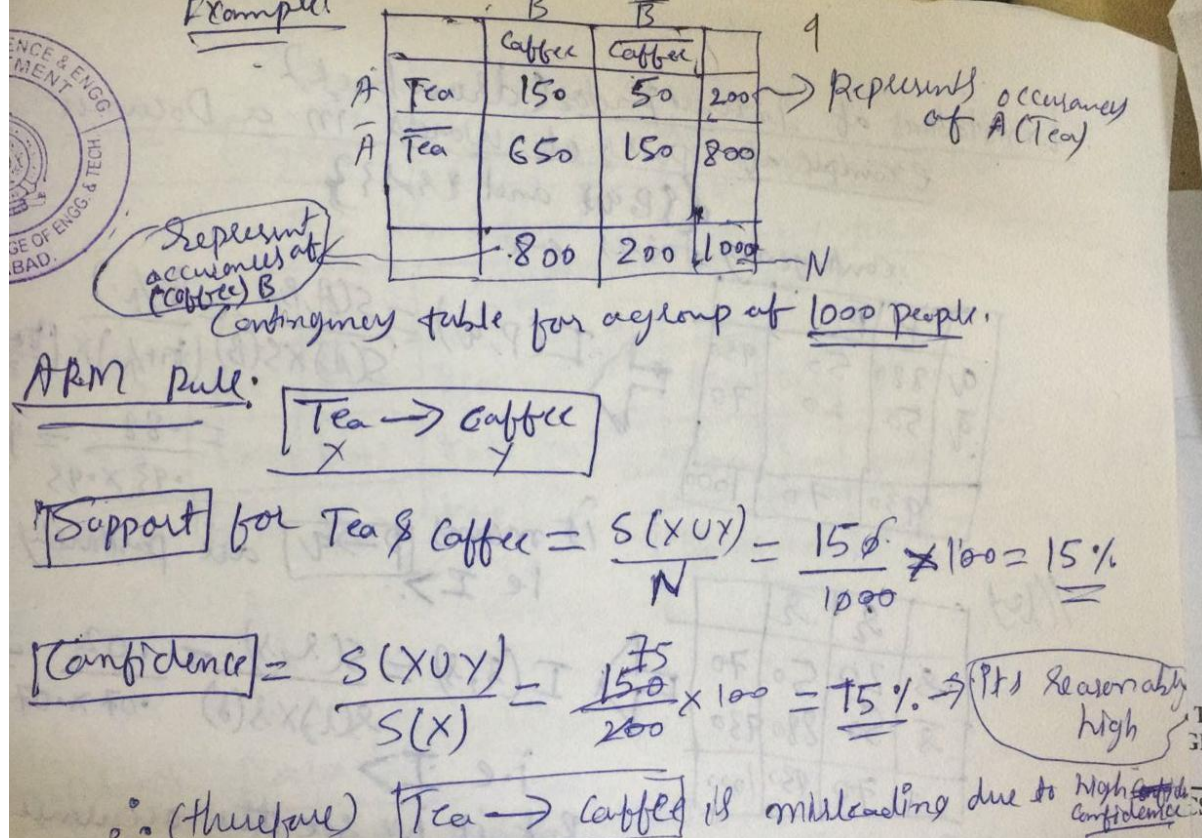 Example
B B̅
Caffee C̅a̅f̅f̅e̅e̅
A Tea 150 50 200 → Represents occurances of A (Tea)
A̅ T̅e̅a̅ 650 150 800
800 200 1000 N
Represent accurances of (coffee) B
Contingency table for a group of 1000 people.
ARM Rule:
Tea → Caffee
X Y
Support for Tea & Caffee = S(XUY) / N = 150 / 1000 × 100 = 15%
Confidence = S(XUY) / S(X) = 150 / 200 × 100 = 75% → It's Reasonably high
75
∴ (therefore) Tea → Caffee is misleading due to high Confidence
ENCE & ENGG.
EMENT
GE OF ENGG. & TECH
BAD.